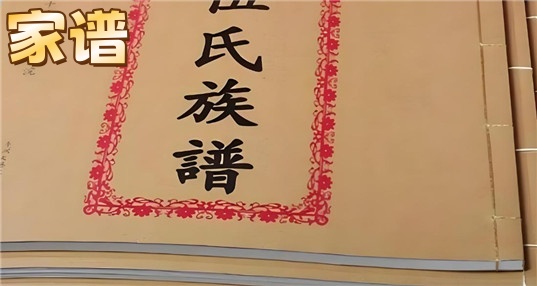 家谱
氏族譜